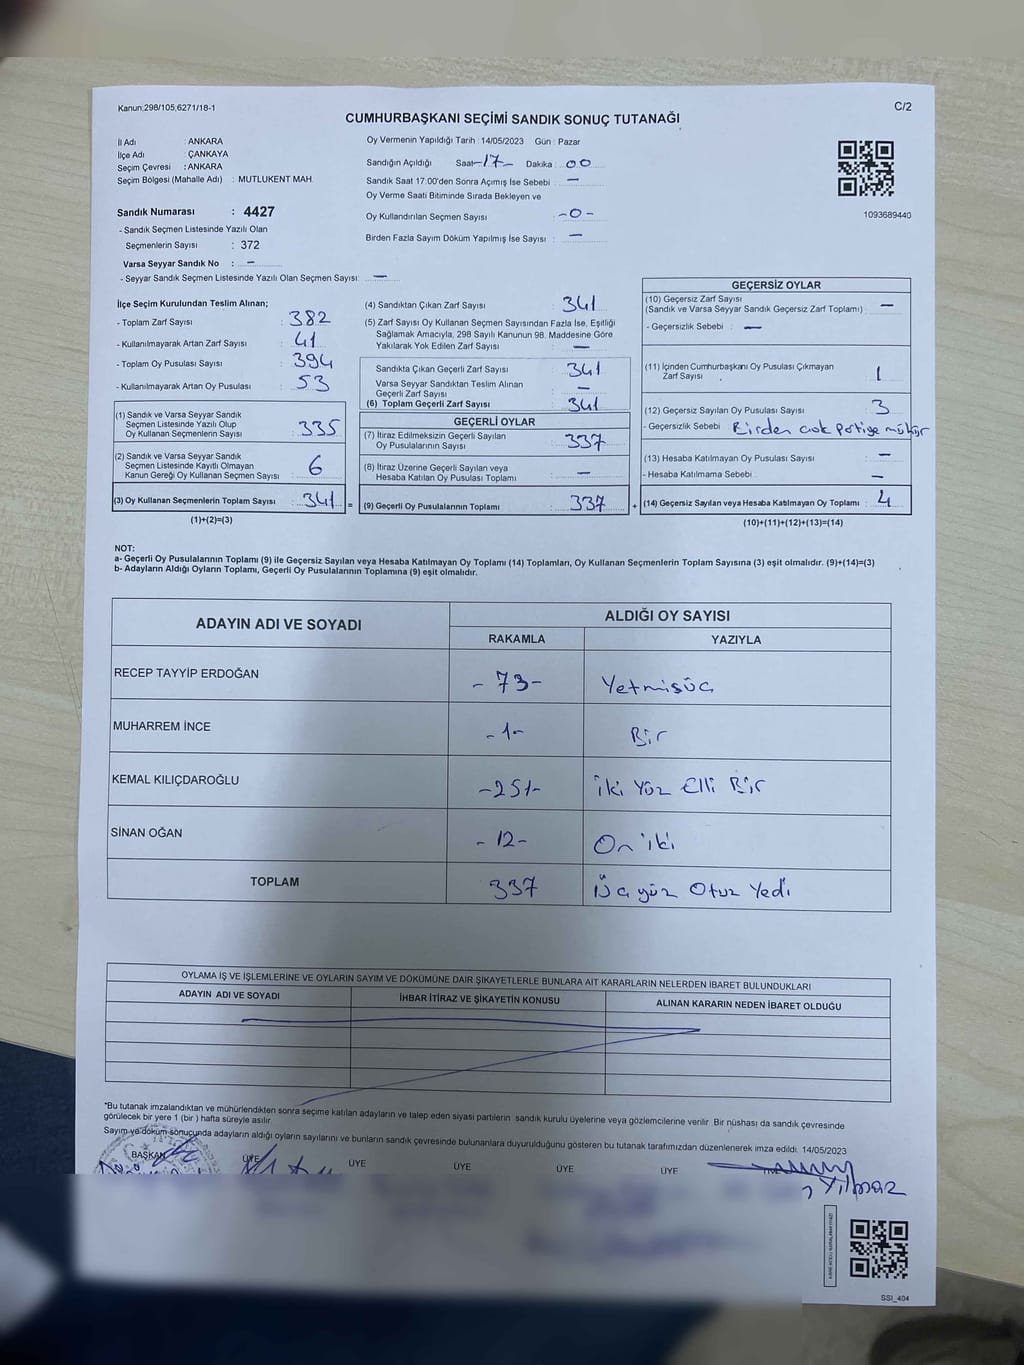 Kanun:298/105,6271/18-1
C/2
CUMHURBAŞKANI SEÇİMİ SANDIK SONUÇ TUTANAĞI
İl Adı : ANKARA
İlçe Adı : ÇANKAYA
Seçim Çevresi : ANKARA
Seçim Bölgesi (Mahalle Adı) : MUTLUKENT MAH
Sandık Numarası : 4427
- Sandık Seçmen Listesinde Yazılı Olan
Seçmenlerin Sayısı : 372
Varsa Seyyar Sandık No : -
- Seyyar Sandık Seçmen Listesinde Yazılı Olan Seçmen Sayısı: -
Oy Vermenin Yapıldığı Tarih : 14/05/2023 Gün : Pazar
Sandığın Açıldığı Saat -17- Dakika : 00
Sandık Saat 17.00'den Sonra Açımış İse Sebebi : -
Oy Verme Saati Bitiminde Sırada Bekleyen ve
Oy Kullandırılan Seçmen Sayısı : -0-
Birden Fazla Sayım Döküm Yapılmış İse Sayısı : -
1093689440
İlçe Seçim Kurulundan Teslim Alınan;
- Toplam Zarf Sayısı : 382
- Kullanılmayarak Artan Zarf Sayısı : 41
- Toplam Oy Pusulası Sayısı : 394
- Kullanılmayarak Artan Oy Pusulası : 53
(1) Sandık ve Varsa Seyyar Sandık
Seçmen Listesinde Yazılı Olup
Oy Kullanan Seçmenlerin Sayısı : 335
(2) Sandık ve Varsa Seyyar Sandık
Seçmen Listesinde Kayıtlı Olmayan
Kanun Gereği Oy Kullanan Seçmen Sayısı : 6
(3) Oy Kullanan Seçmenlerin Toplam Sayısı : 341 =
(1)+(2)=(3)
(4) Sandıktan Çıkan Zarf Sayısı : 341
(5) Zarf Sayısı Oy Kullanan Seçmen Sayısından Fazla İse, Eşitliği
Sağlamak Amacıyla, 298 Sayılı Kanunun 98. Maddesine Göre
Yakılarak Yok Edilen Zarf Sayısı : -
Sandıkta Çıkan Geçerli Zarf Sayısı : 341
Varsa Seyyar Sandıktan Teslim Alınan
Geçerli Zarf Sayısı : -
(6) Toplam Geçerli Zarf Sayısı : 341
GEÇERLİ OYLAR
(7) İtiraz Edilmeksizin Geçerli Sayılan
Oy Pusulalarının Sayısı : 337
(8) İtiraz Üzerine Geçerli Sayılan veya
Hesaba Katılan Oy Pusulası Toplamı : -
(9) Geçerli Oy Pusulalarının Toplamı : 337 +
GEÇERSİZ OYLAR
(10) Geçersiz Zarf Sayısı
(Sandık ve Varsa Seyyar Sandık Geçersiz Zarf Toplamı) : -
- Geçersizlik Sebebi : -
(11) İçinden Cumhurbaşkanı Oy Pusulası Çıkmayan
Zarf Sayısı : 1
(12) Geçersiz Sayılan Oy Pusulası Sayısı : 3
- Geçersizlik Sebebi : Birden çok partiye mühür
(13) Hesaba Katılmayan Oy Pusulası Sayısı : -
- Hesaba Katılmama Sebebi : -
(14) Geçersiz Sayılan veya Hesaba Katılmayan Oy Toplamı : 4
(10)+(11)+(12)+(13)=(14)
NOT:
a- Geçerli Oy Pusulalarının Toplamı (9) ile Geçersiz Sayılan veya Hesaba Katılmayan Oy Toplamı (14) Toplamları, Oy Kullanan Seçmenlerin Toplam Sayısına (3) eşit olmalıdır. (9)+(14)=(3)
b- Adayların Aldığı Oyların Toplamı, Geçerli Oy Pusulalarının Toplamına (9) eşit olmalıdır.
ADAYIN ADI VE SOYADI ALDIĞI OY SAYISI
RAKAMLA YAZIYLA
RECEP TAYYİP ERDOĞAN -73- Yetmişüç
MUHARREM İNCE -1- Bir
KEMAL KILIÇDAROĞLU -251- iki Yüz Elli Bir
SİNAN OĞAN -12- On iki
TOPLAM 337 Üçyüz Otuz Yedi
OYLAMA İŞ VE İŞLEMLERİNE VE OYLARIN SAYIM VE DÖKÜMÜNE DAİR ŞİKAYETLERLE BUNLARA AİT KARARLARIN NELERDEN İBARET BULUNDUKLARI
ADAYIN ADI VE SOYADI İHBAR İTİRAZ VE ŞİKAYETİN KONUSU ALINAN KARARIN NEDEN İBARET OLDUĞU
"Bu tutanak imzalandıktan ve mühürlendikten sonra seçime katılan adayların ve talep eden siyasi partilerin sandık kurulu üyelerine veya gözlemcilerine verilir. Bir nüshası da sandık çevresinde
görülecek bir yere 1 (bir ) hafta süreyle asılır.
Sayım ve döküm sonuçunda adayların aldığı oyların sayılarını ve bunların sandık çevresinde bulunanlara duyurulduğunu gösteren bu tutanak tarafımızdan düzenlenerek imza edildi. 14/05/2023
BAŞKAN ÜYE ÜYE ÜYE ÜYE ÜYE
Yılmaz
SSI_404